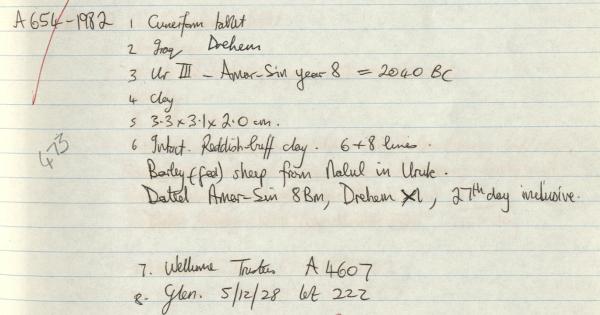 A654-1982 1 Cuneiform tablet
2 Iraq Drehem
3 Ur III - Amar-Sin year 8 = 2040 BC
4 Clay
5 3.3 x 3.1 x 2.0 cm.
6 Intact. Reddish-buff clay. 6+8 lines.
473
Barley (fed) sheep from Nalul in Uruk.
Dated Amar-Sin 8Bm, Drehem XI, 27th day inclusive.
7. Wellcome Trustees A 4607
8. Glen. 5/12/28 lot 222